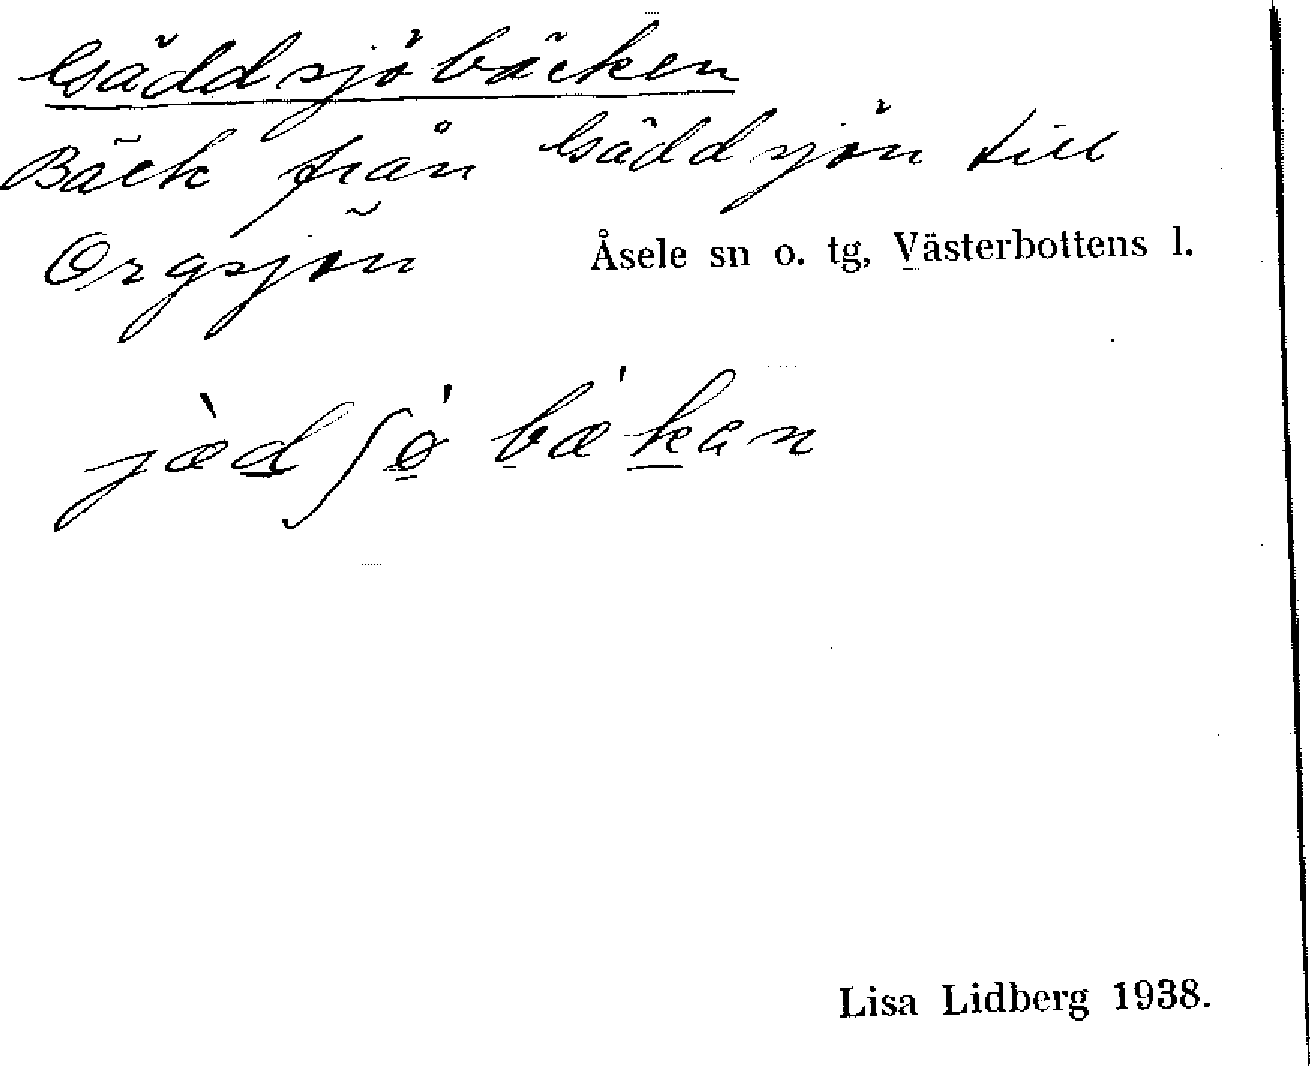 Gäddsjöbäcken
Bäck från Gäddsjön till
Orgsjön
Åsele sn o. tg, Västerbottens l.
jæ̀dʃǿbæ'kan
Lisa Lidberg 1938.